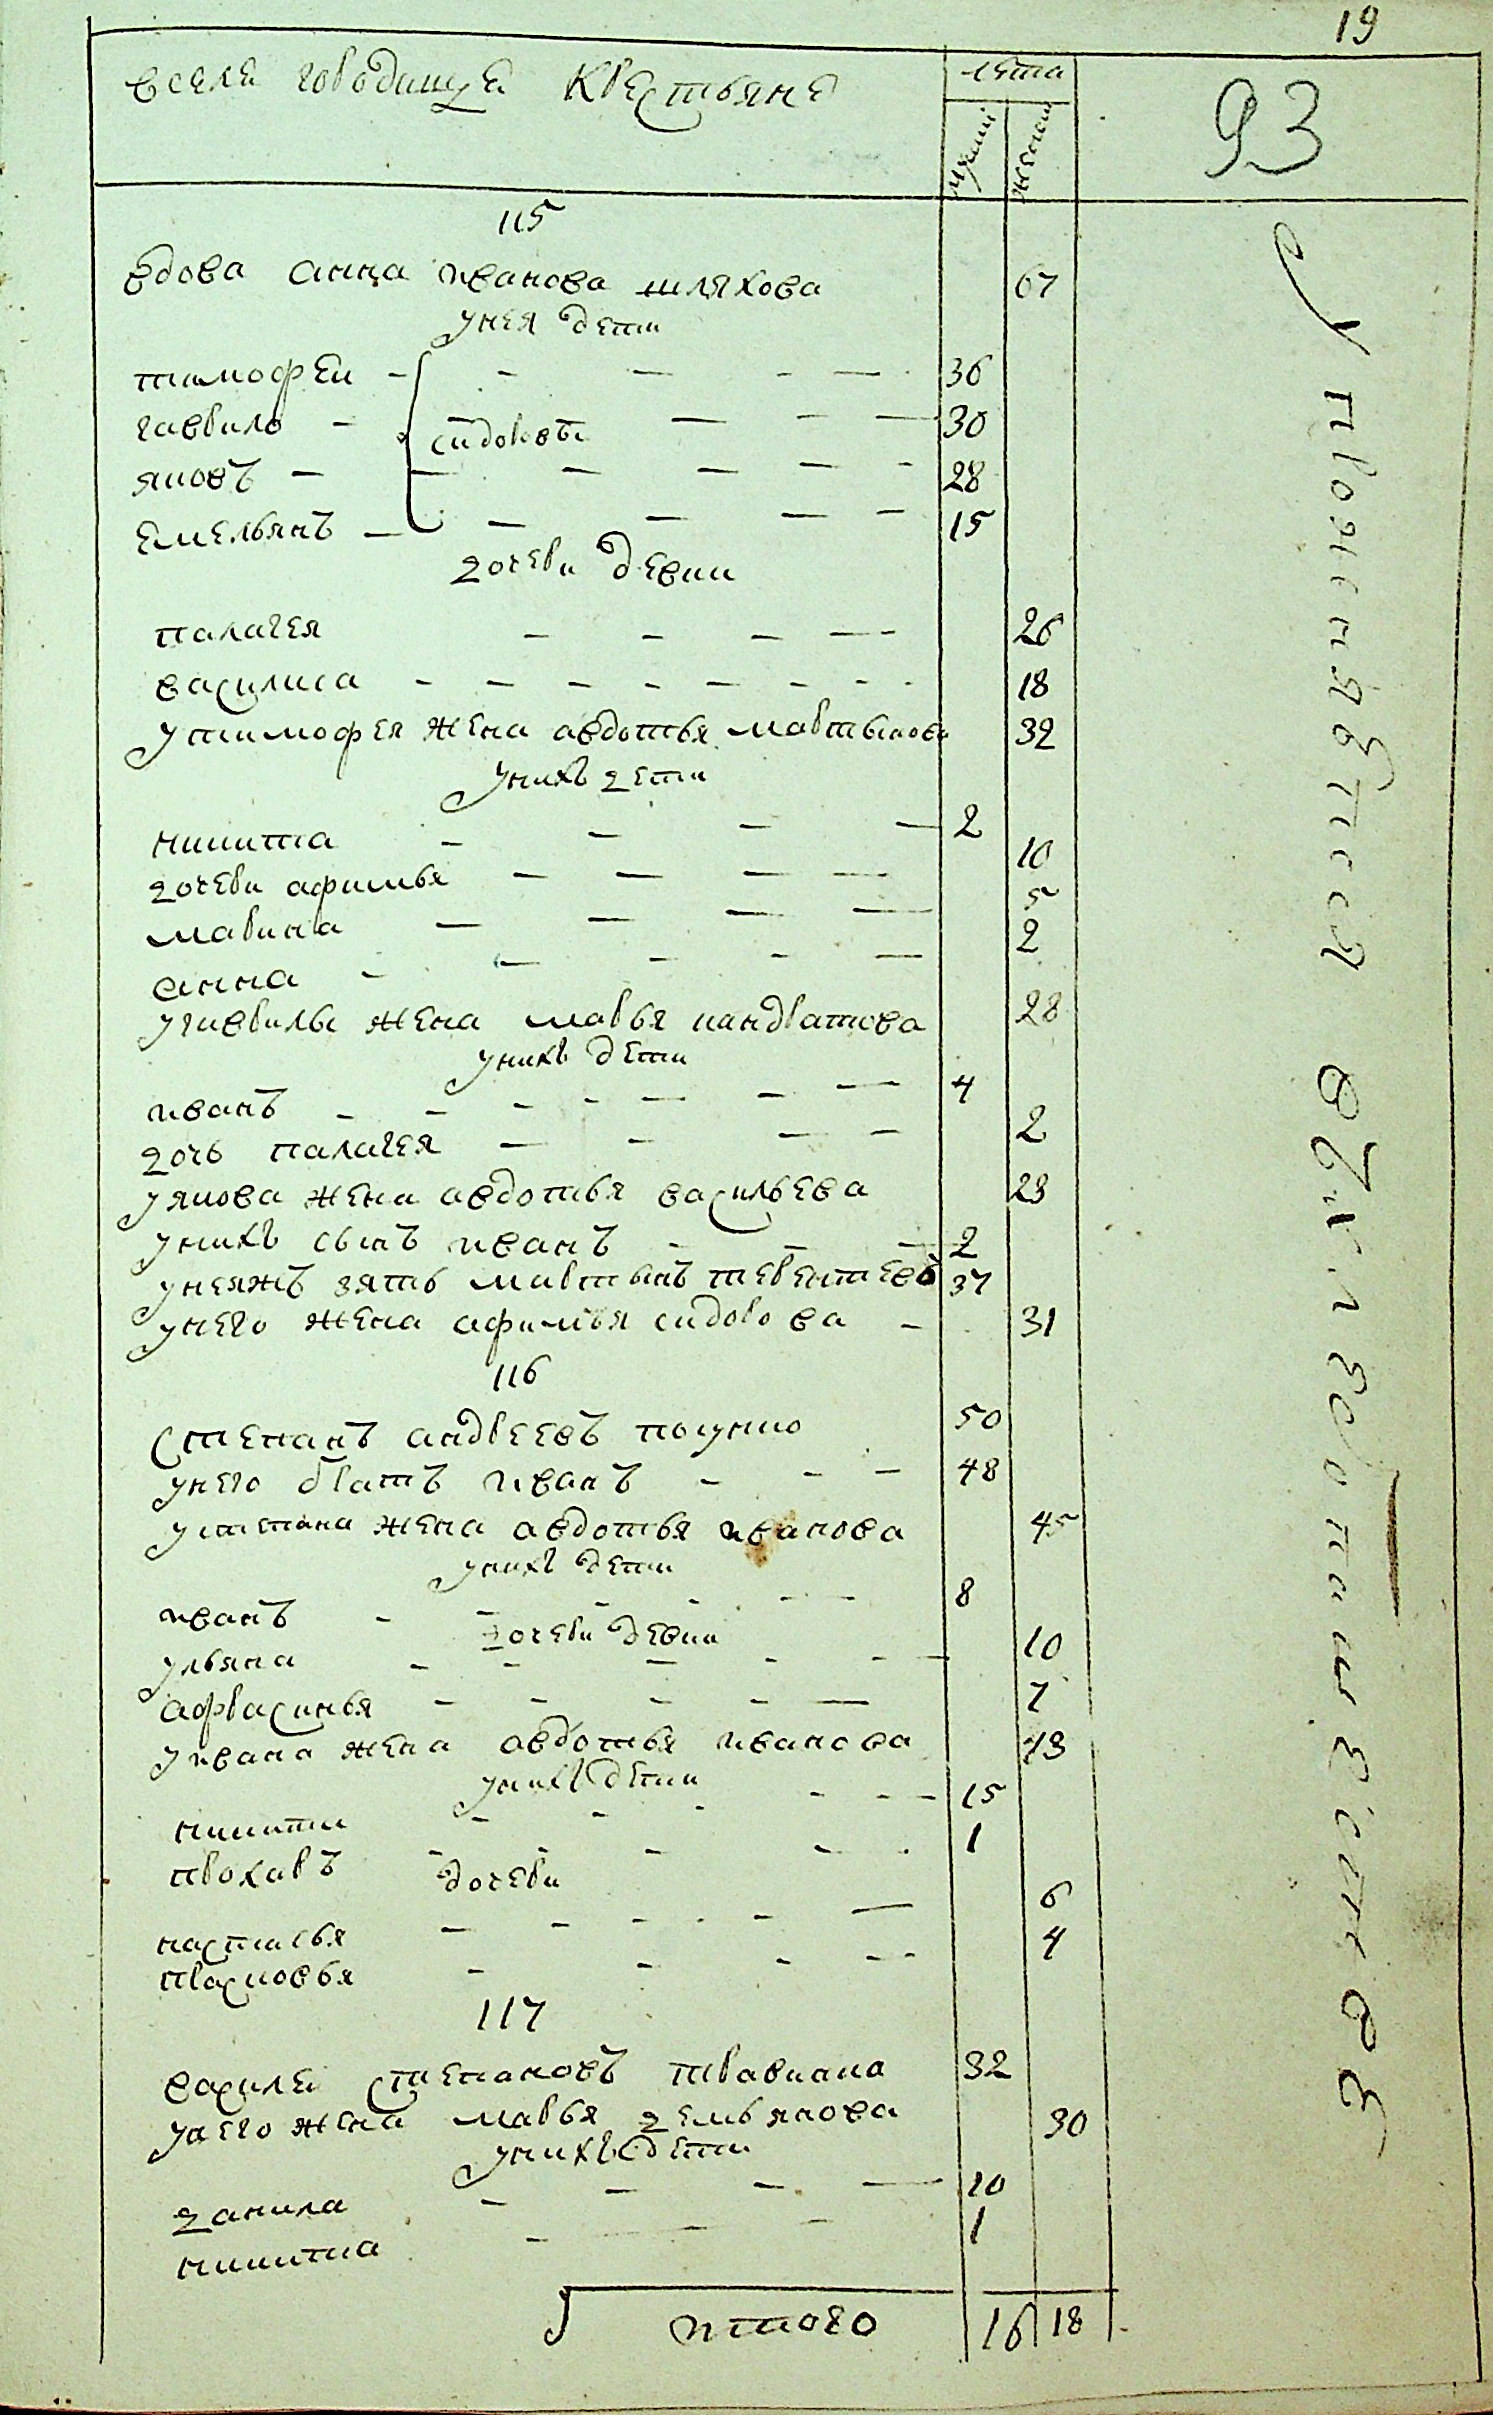 19
вселе городище крестьяне
лета
мужии
женски
93
115
вдова анна иванова шляхова 67
унея дети
тимофеи 36
гаврило 30
сидоровы
яковъ 28
емельянъ 15
дочери девки
палагея 26
василиса 18
утимофея жена авдотья мартынова 32
унихъ дети
никита 2
дочери афимья 10
марина 5
анна 2
угаврилы жена марья кандратова 28
унихъ дети
иванъ 4
дочь палагея 2
уякова жена авдотья васильева 23
унихъ сынъ иванъ 2
унеяжъ зять мартынъ терентьевъ 37
унего жена афимья сидорова 31
116
степанъ андреевъ 50
унего братъ иванъ 48
устепана жена авдотья иванова 45
унихъ дети
иванъ 8
дочери девки
ульяна 10
афрасинья 7
уивана жена авдотья иванова 43
унихъ дети
никита 15
прохаръ 1
дочери
настасья 6
прасковья 4
117
василеи степановъ 32
унего жена марья демьянова 30
унихъ дети
данила 10
никита 1
итого 16 18